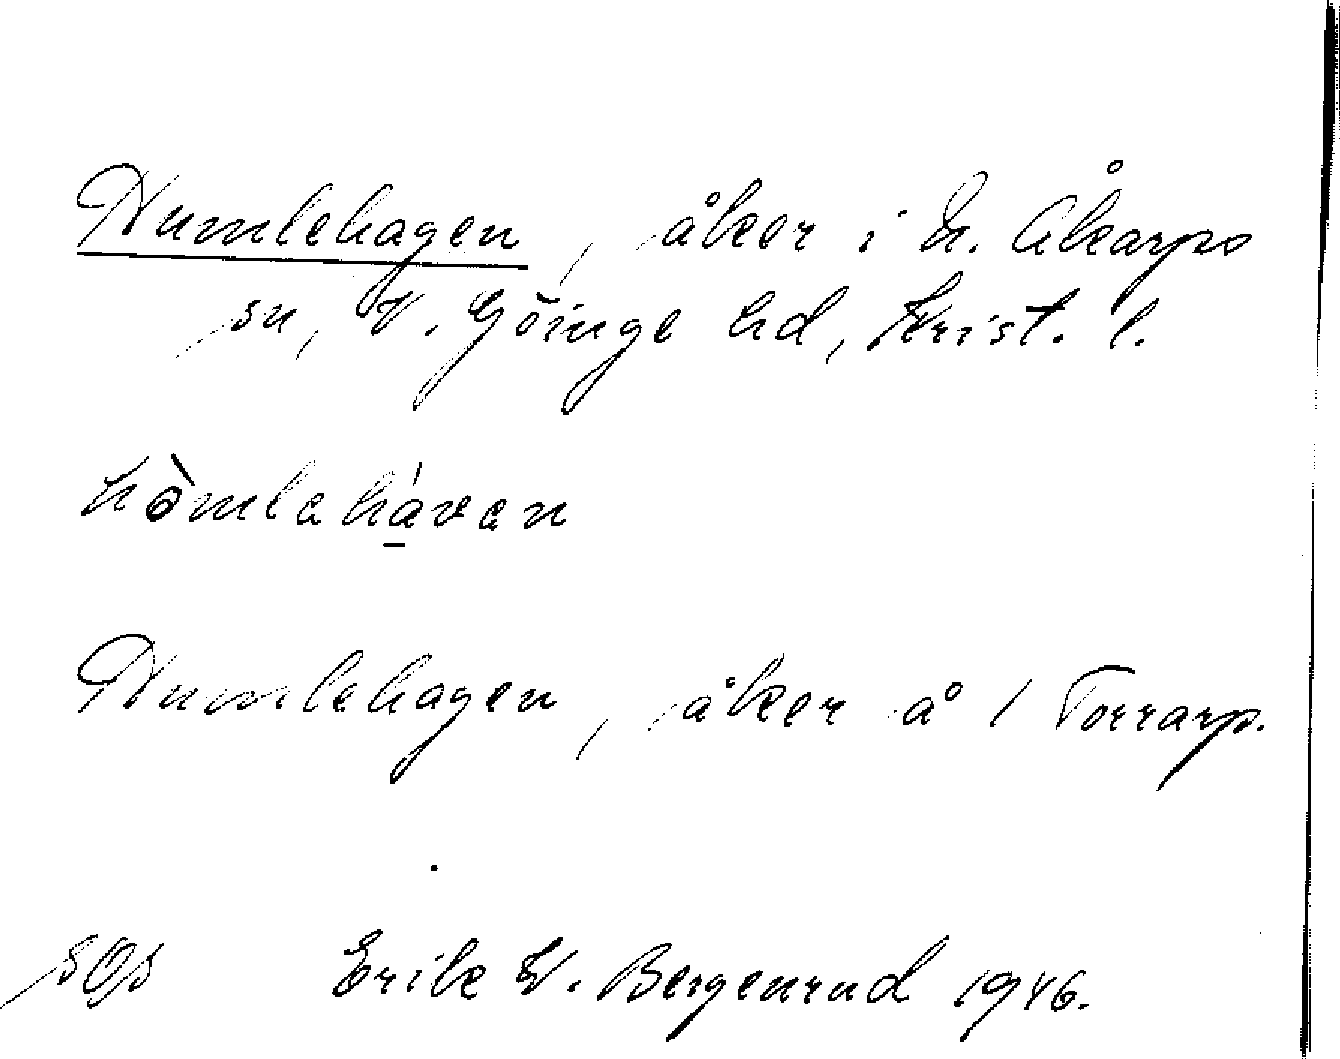 Humlehagen, åker i N. Åkarps
sn, V. Göinge hd, Krist. l.
hòmlahávan
Humlehagen, åker å 1 Torrarp.
Erik W. Bergenrud 1946.